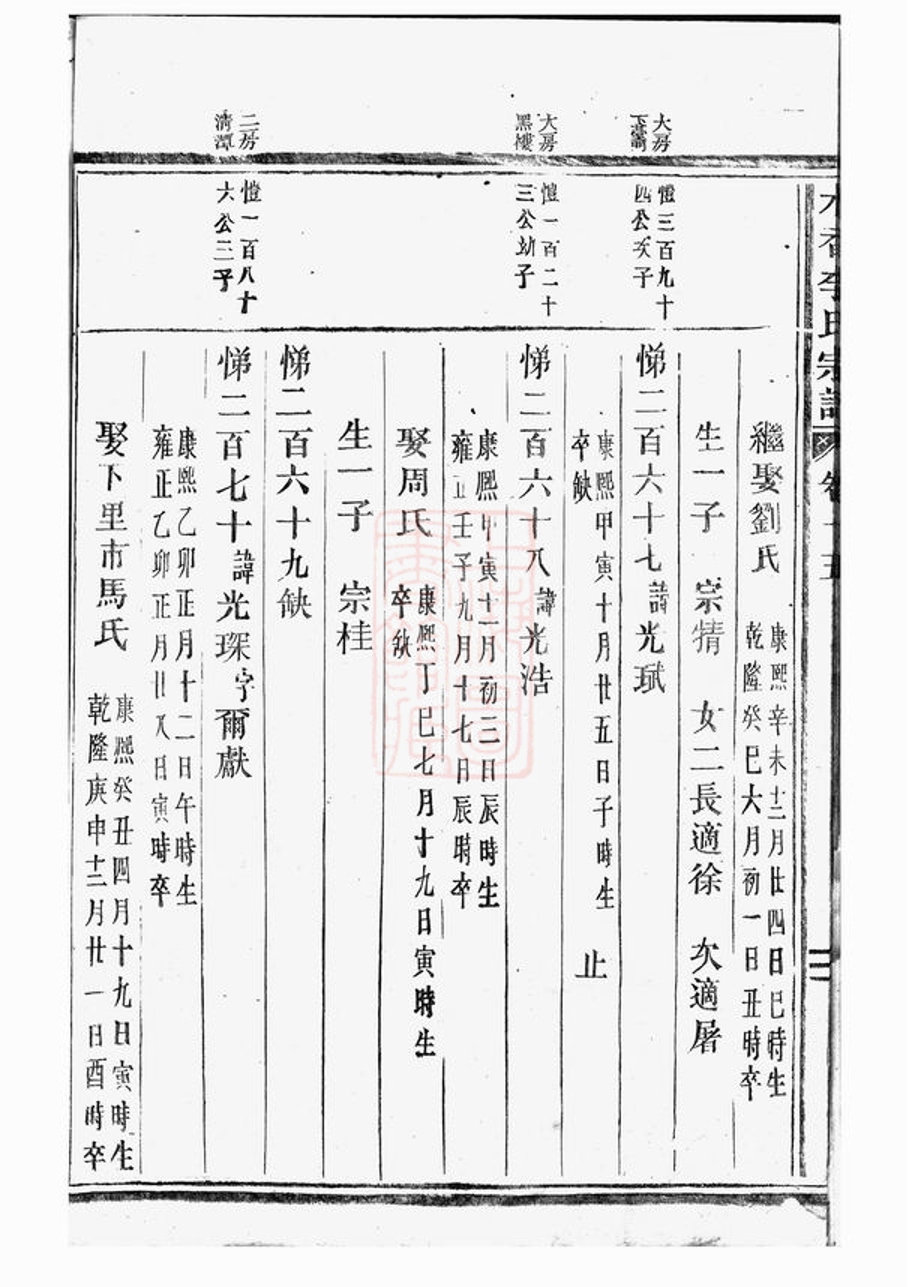 李氏宗譜 卷十五
繼娶劉氏
康熙辛未十二月廿四日巳時生
乾隆癸巳六月初一日丑時卒
生一子 宗猜 女二長適徐 次適屠
大房
愷三百九十
四公次子
悌二百六十七諱光珷
康熙甲寅十月廿五日子時生
卒缺
止
大房
黑樓
愷一百二十
三公幼子
悌二百六十八諱光浩
康熙甲寅十一月初三日辰時生
雍正壬子九月十七日辰時卒
娶周氏
康熙丁巳七月十九日寅時生
卒缺
生一子 宗桂
悌二百六十九缺
二房
清潭
愷一百八十
六公三子
悌二百七十諱光琛字爾獻
康熙乙卯正月十二日午時生
雍正乙卯正月廿八日寅時卒
娶下里市馬氏
康熙癸丑四月十九日寅時生
乾隆庚申十二月廿一日酉時卒